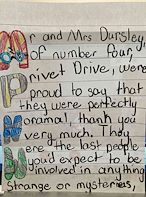 Mr and Mrs Dursley,
of number four,
Privet Drive, were
proud to say that
they were perfectly
Noramal, thank you
very much. They
were the last people
you'd expect to be
involved in anything
strange or mysteries,